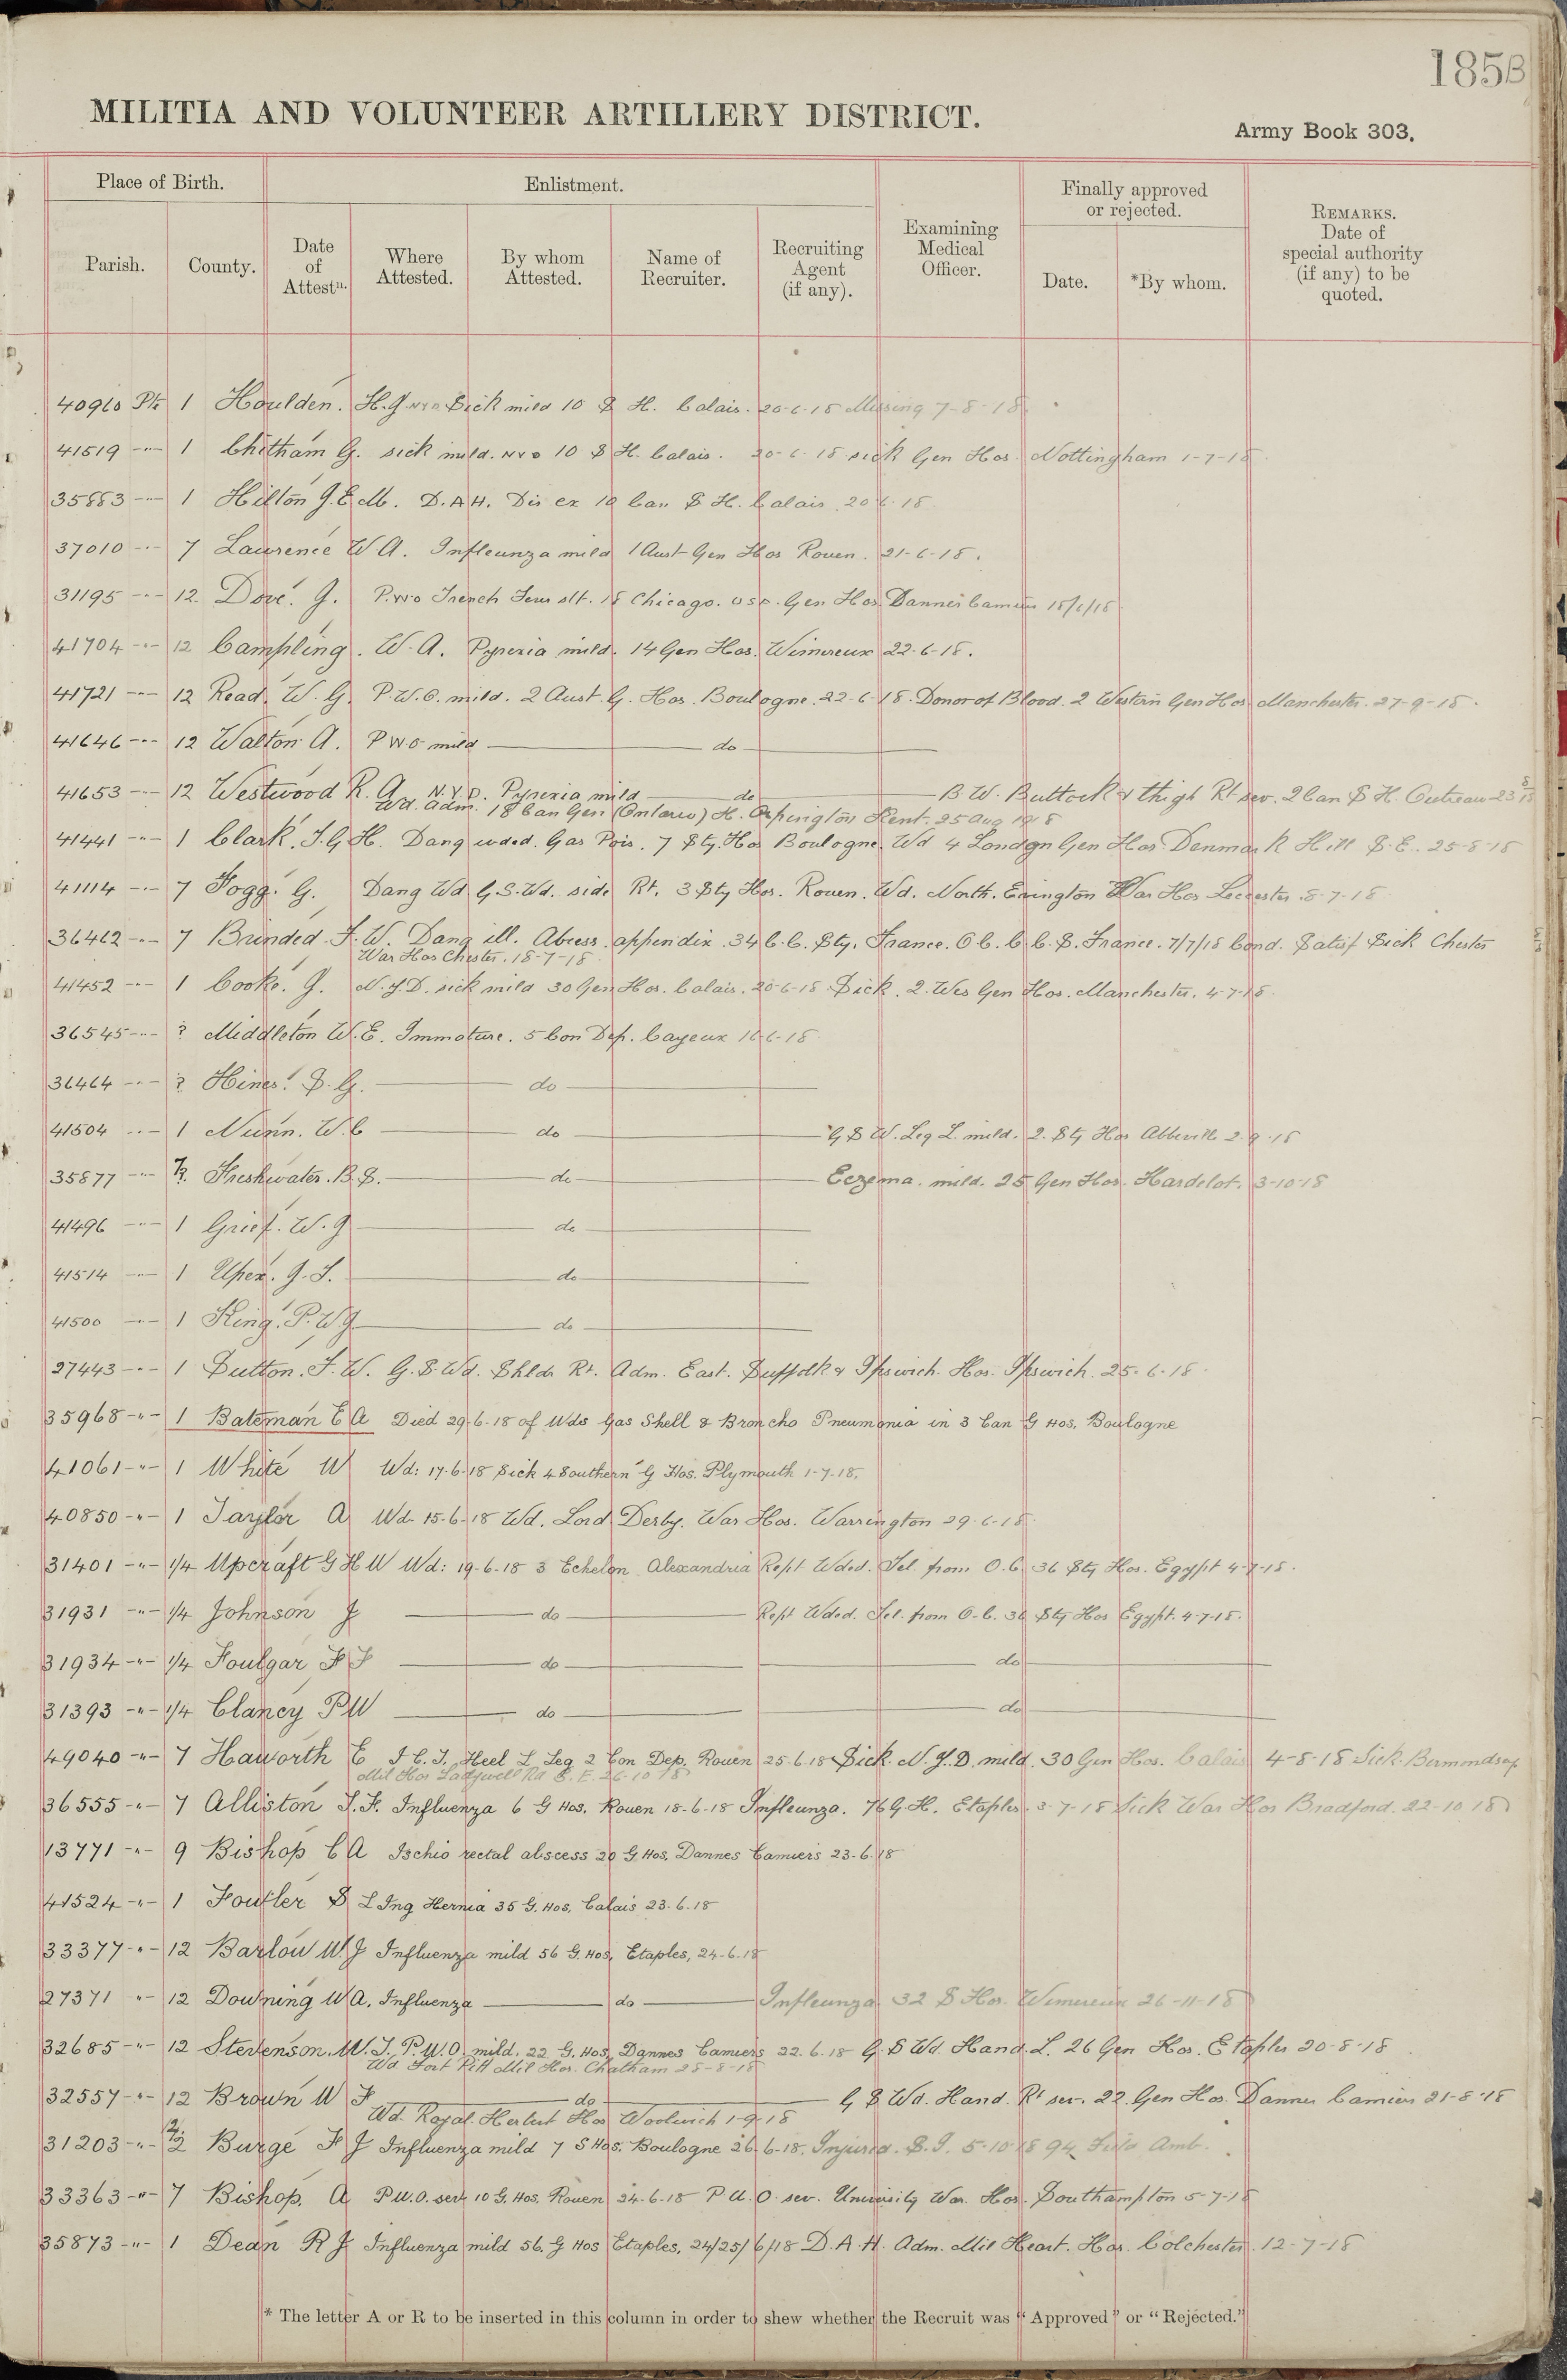 185B
MILITIA AND VOLUNTEER ARTILLERY DISTRICT.
Army Book 303.
Place of Birth.
Enlistment.
Finally approved or rejected.
Parish.
County.
Date of Attestn.
Where Attested.
By whom Attested.
Name of Recruiter.
Recruiting Agent (if any).
Examining Medical Officer.
Date.
*By whom.
REMARKS. Date of special authority (if any) to be quoted.
40960 Pte 1 Houlden. H.J. NYD Sick mild 10 S H. Calais. 20-6-18 Missing 7-8-18
41519 -"- 1 Chitham G. sick mild. NYD 10 S H. Calais. 20-6-18 sick Gen Hos. Nottingham 1-7-18.
35883 -"- 1 Hilton J.E.M. D.A.H. Dis ex 10 Can S H. Calais. 20-6-18
37010 -"- 7 Laurence W A. Infleunza mild 1 Aust Gen Hos Rouen. 21-6-18.
31195 -"- 12 Dove. J. P.U.O Trench Fever slt. 18 Chicago. USA. Gen Hos Dannes Camiers 18/6/18
41704 -"- 12 Campling. W. A. Pyrexia mild. 14 Gen Hos. Wimereux 22-6-18.
41721 -"- 12 Read. W. G. P.U.O. mild. 2 Aust. G. Hos. Boulogne. 22-6-18. Donor of Blood. 2 Western Gen Hos Manchester. 27-9-18.
41646 -"- 12 Walton A. PUO mild do
41653 -"- 12 Westwood R. A. N.Y.D. Pyrexia mild do B W. Buttock & thigh Rt sev. 2 Can S H. Outreau 23 8 18
Wd. adm. 18 Can Gen (Ontario) H. Orpington Kent. 25 Aug 1918
41441 -"- 1 Clark. F.G H. Dang wded. Gas Pois. 7 Sty. Hos Boulogne. Wd 4 London Gen Hos Denmark Hill S.E. 25-8-18
41114 -"- 7 Fogg. G. Dang Wd G.S.Wd. side Rt. 3 Sty Hos. Rouen. Wd. North. Evington War Hos Leicester. 8-7-18
36462 -"- 7 Brinded. F. W. Dang ill. Abcess. appendix. 34 C.C. Sty. France. O C. C. C. S. France. 7/7/18 Cond. Satisf Sick Chester
War Hos Chester. 18-7-18
41452 -"- 1 Cooke. J. N.Y.D. sick mild 30 Gen Hos. Calais. 20-6-18 Sick. 2. Wes Gen Hos. Manchester. 4-7-18.
36545 -"- ? Middleton W.E. Immature. 5 Con Dep. Cayeux 16-6-18
36464 -"- ? Hines. S. G. do
41504 -"- 1 Nunn. W.C do G S W. Leg L. mild. 2. Sty Hos Abbeville 2-9-18
35877 -"- Freshwater. B.S. do Eczema. mild. 25 Gen Hos. Hardelot. 3-10-18
41496 -"- 1 Grief. W. J do
41514 -"- 1 Upex. J. S. do
41500 -"- 1 King. P.W.J do
27443 -"- 1 Sutton. F. W. G.S.Wd. Shldr Rt. Adm. East. Suffolk & Ipswich. Hos. Ipswich. 25-6-18
35968 -"- 1 Bateman E A Died 29-6-18 of Wds Gas Shell & Broncho Pneumonia in 3 Can G Hos, Boulogne
41061 -"- 1 White W Wd: 17-6-18 Sick 4 Southern G Hos. Plymouth 1-7-18.
40850 -"- 1 Taylor A Wd 15-6-18 Wd. Lord Derby. War Hos. Warrington 29-6-18
31401 -"- 1/4 Upcraft G H W Wd: 19-6-18 3 Echelon Alexandria Rept Wded. Tel. from O.C. 36 Sty Hos. Egypt 4-7-18.
31931 -"- 1/4 Johnson J do Rept Wded. Tel. from O.C. 36 Sty Hos Egypt. 4-7-18.
31934 -"- 1/4 Foulgar F F do do
31393 -"- 1/4 Clancy P W do do
49040 -"- 7 Haworth E I.C.T. Heel L Leg 2 Con Dep, Rouen 25.6.18 Sick. N.Y.D. mild. 30 Gen Hos. Calais 4-8-18 Sick. Bermondsey
Mil Hos Ladywell Rd S.E. 26-10-18
36555 -"- 7 Alliston T.F. Influenza 6 G Hos, Rouen 18-6-18 Infleunza. 76 G.H. Etaples. 3-7-18 Sick War Hos Bradford. 22-10-18
13771 -"- 9 Bishop C A Ischio rectal abscess 20 G Hos, Dannes Camiers 23-6-18
41524 -"- 1 Fowler S L Ing Hernia 35 G. Hos, Calais 23-6-18
33377 -"- 12 Barlow W.J Influenza mild 56 G. Hos, Etaples, 24-6-18
27371 -"- 12 Downing W A. Influenza do Infleunza 32 S Hos. Wimereux 26-11-18
32685 -"- 12 Stevenson. W.T. P.U.O. mild. 22 G. Hos, Dannes Camiers 22.6.18 G.S Wd. Hand. L. 26 Gen Hos. Etaples 20-8-18
Wd Fort Pitt Mil Hos. Chatham 28-8-18
32557 -"- 12 Brown W F do G S Wd. Hand. Rt sev. 22. Gen Hos. Dannes Camiers 21-8-18
Wd. Royal. Herbert Hos Woolwich 1-9-18
31203 -"- Burge F J Influenza mild 7 S Hos. Boulogne 26-6-18. Injured. S.I. 5-10-18 94 Field Amb.
33363 -"- 7 Bishop. A P.U.O. sev. 10 G. Hos, Rouen 24-6-18 P.U.O. sev. University War. Hos. Southampton 5-7-18
35873 -"- 1 Dean R J Influenza mild 56. G Hos Etaples. 24/25/6/18 D.A.H. Adm. Mil Heart. Hos. Colchester. 12-7-18
* The letter A or R to be inserted in this column in order to shew whether the Recruit was "Approved" or "Rejected."